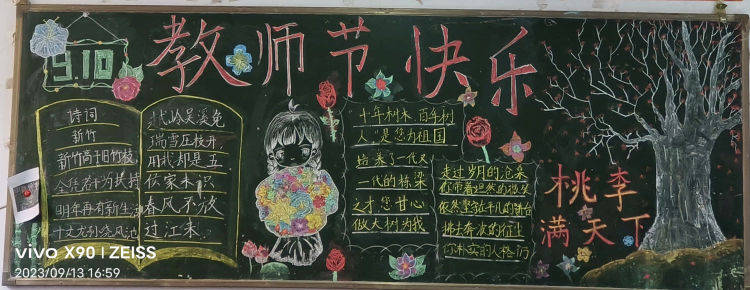 9.10
教师节快乐
诗词
新竹
新竹高于旧竹枝
全凭老干为扶持
明年再有新生
十丈龙孙绕凤池
春风不放
过江来
十年树木 百年树
人"是您为祖国
培养了一代又
一代的栋梁
之才您甘心
做大树为我
走过岁月的沧桑
你带着坦然的微笑
依然坚守在平凡的讲台
桃李
满天下
vivo X90 | ZEISS
2023/09/13 16:59